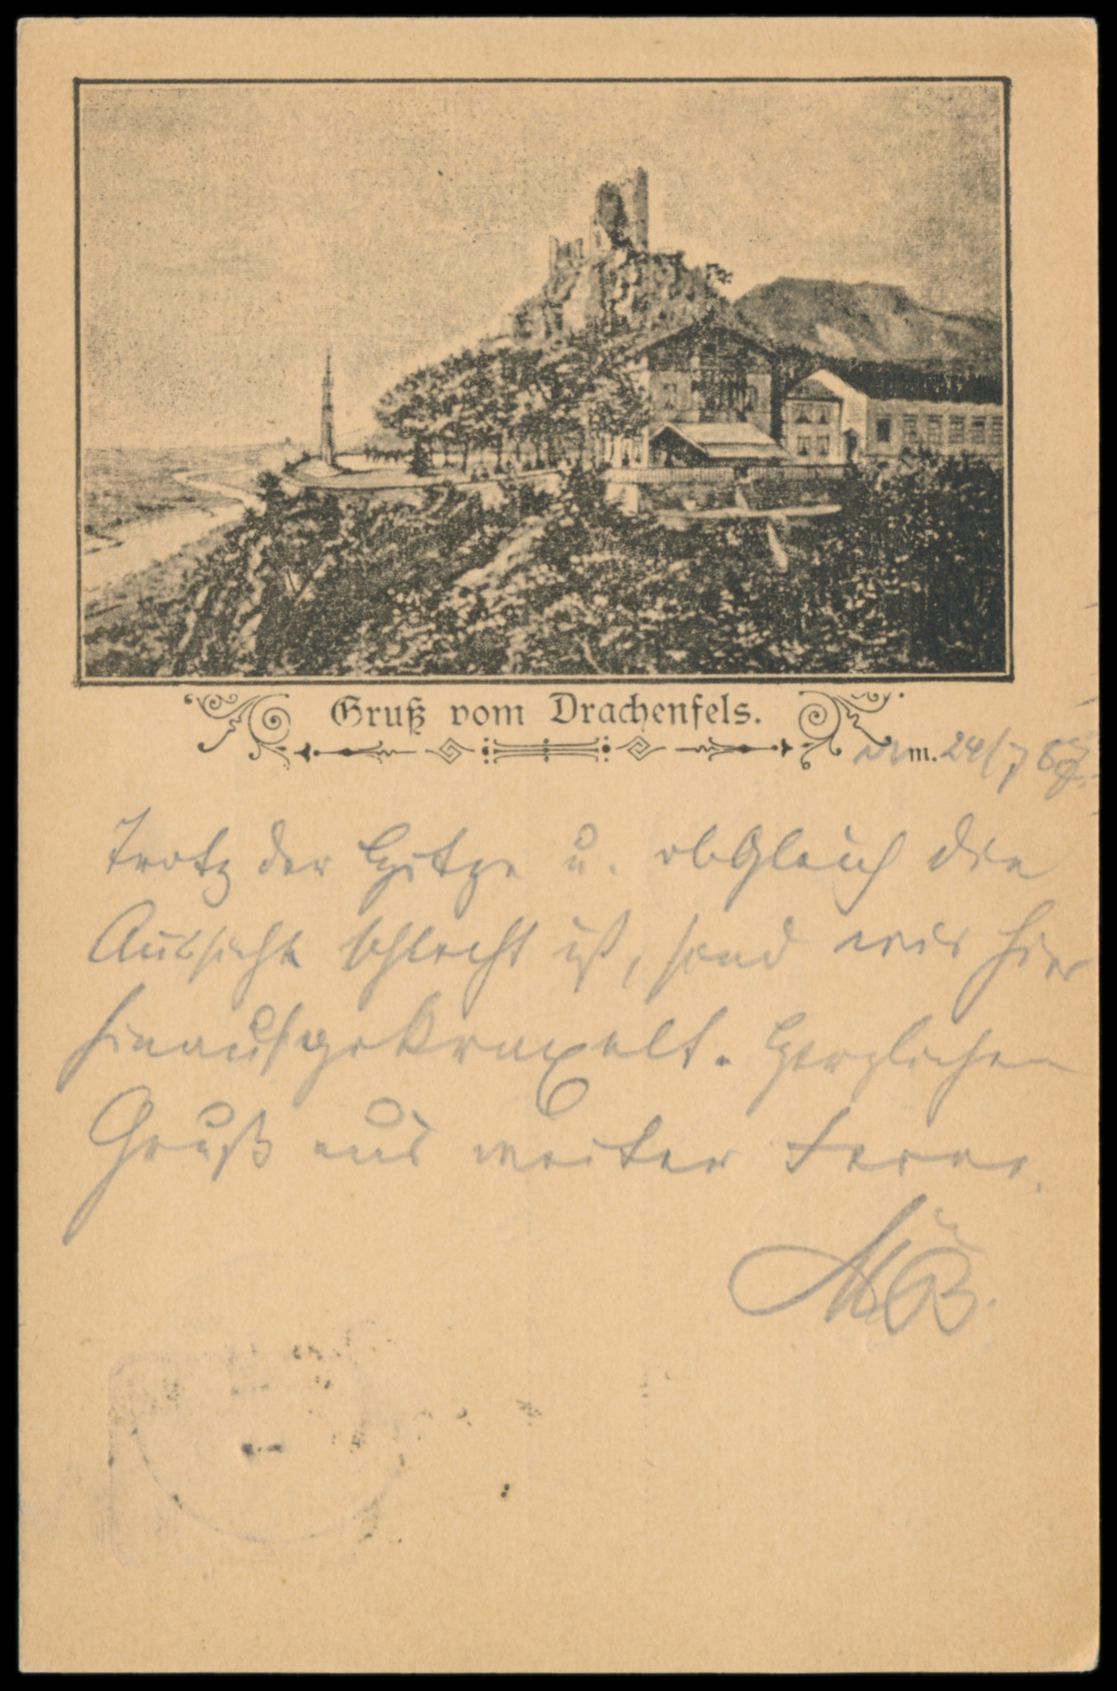 Gruß vom Drachenfels.
m. 24/7 87.
Trotz der Hitze u. obgleich die
Aussicht schlecht ist, sand wir hier
hinaufgekraxelt. Herzlichen
Gruß aus weiter Ferne.